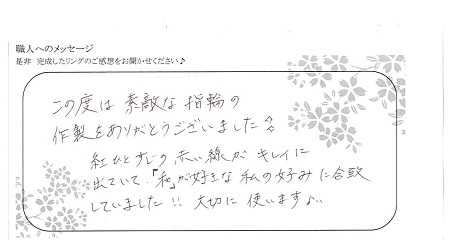 職人へのメッセージ
是非 完成したリングのご感想をお聞かせください♪
この度は 素敵な 指輪の
作製をありがとうございました
紅ひとすじの 赤い線が キレイに
出ていて、「和」が好きな 私の好みに合致
していました!! 大切に 使います♪..